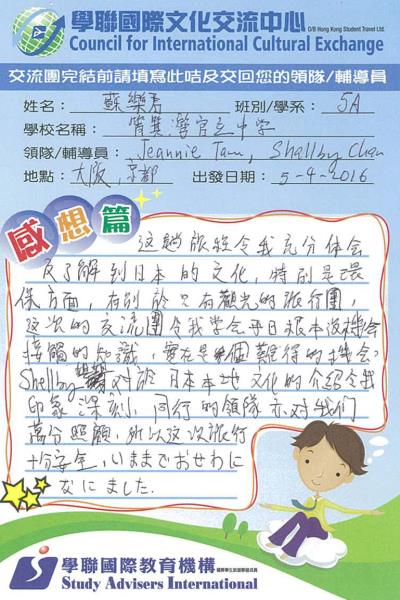 學聯國際文化交流中心
O/B Hong Kong Student Travel Ltd.
Council for International Cultural Exchange
交流團完結前請填寫此咭及交回您的領隊/輔導員
姓名：蘇樂 班別/學系：5A
學校名稱：官立中學
領隊/輔導員：Jeannie Tam, Shellby Chan
地點：大阪,京都 出發日期：5-4-2016
感想篇
这趟旅程令我充分体会
及了解到日本的文化，特別是環
保方面，有別於只有觀光的旅行團，
这次的交流團令我学会平日根本没機会
接觸的知識，實在是一個難得的機会。
Shellby 对於日本本地文化的介绍令我
印象深刻，同行的領隊亦对我们
萬分照顧，所以这次旅行
十分安全，いままでおせわに
なにました.
學聯國際教育機構
Study Advisers International